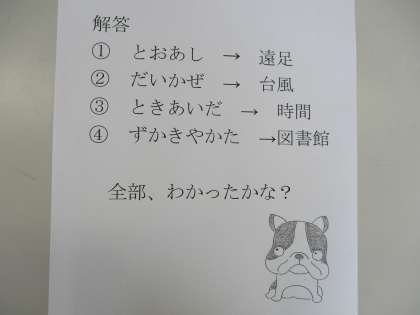 解答
① とおあし → 遠足
② だいかぜ → 台風
③ ときあいだ → 時間
④ ずかきやかた →図書館
全部、わかったかな？